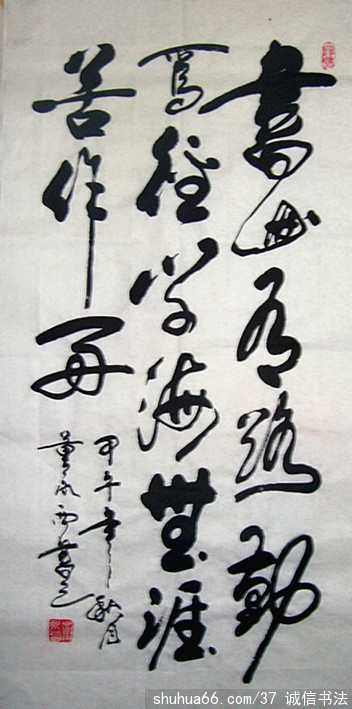 書山有路勤
為徑学海無涯
苦作舟
甲午年秋月
董西書之
shuhua66.com/37 诚信书法